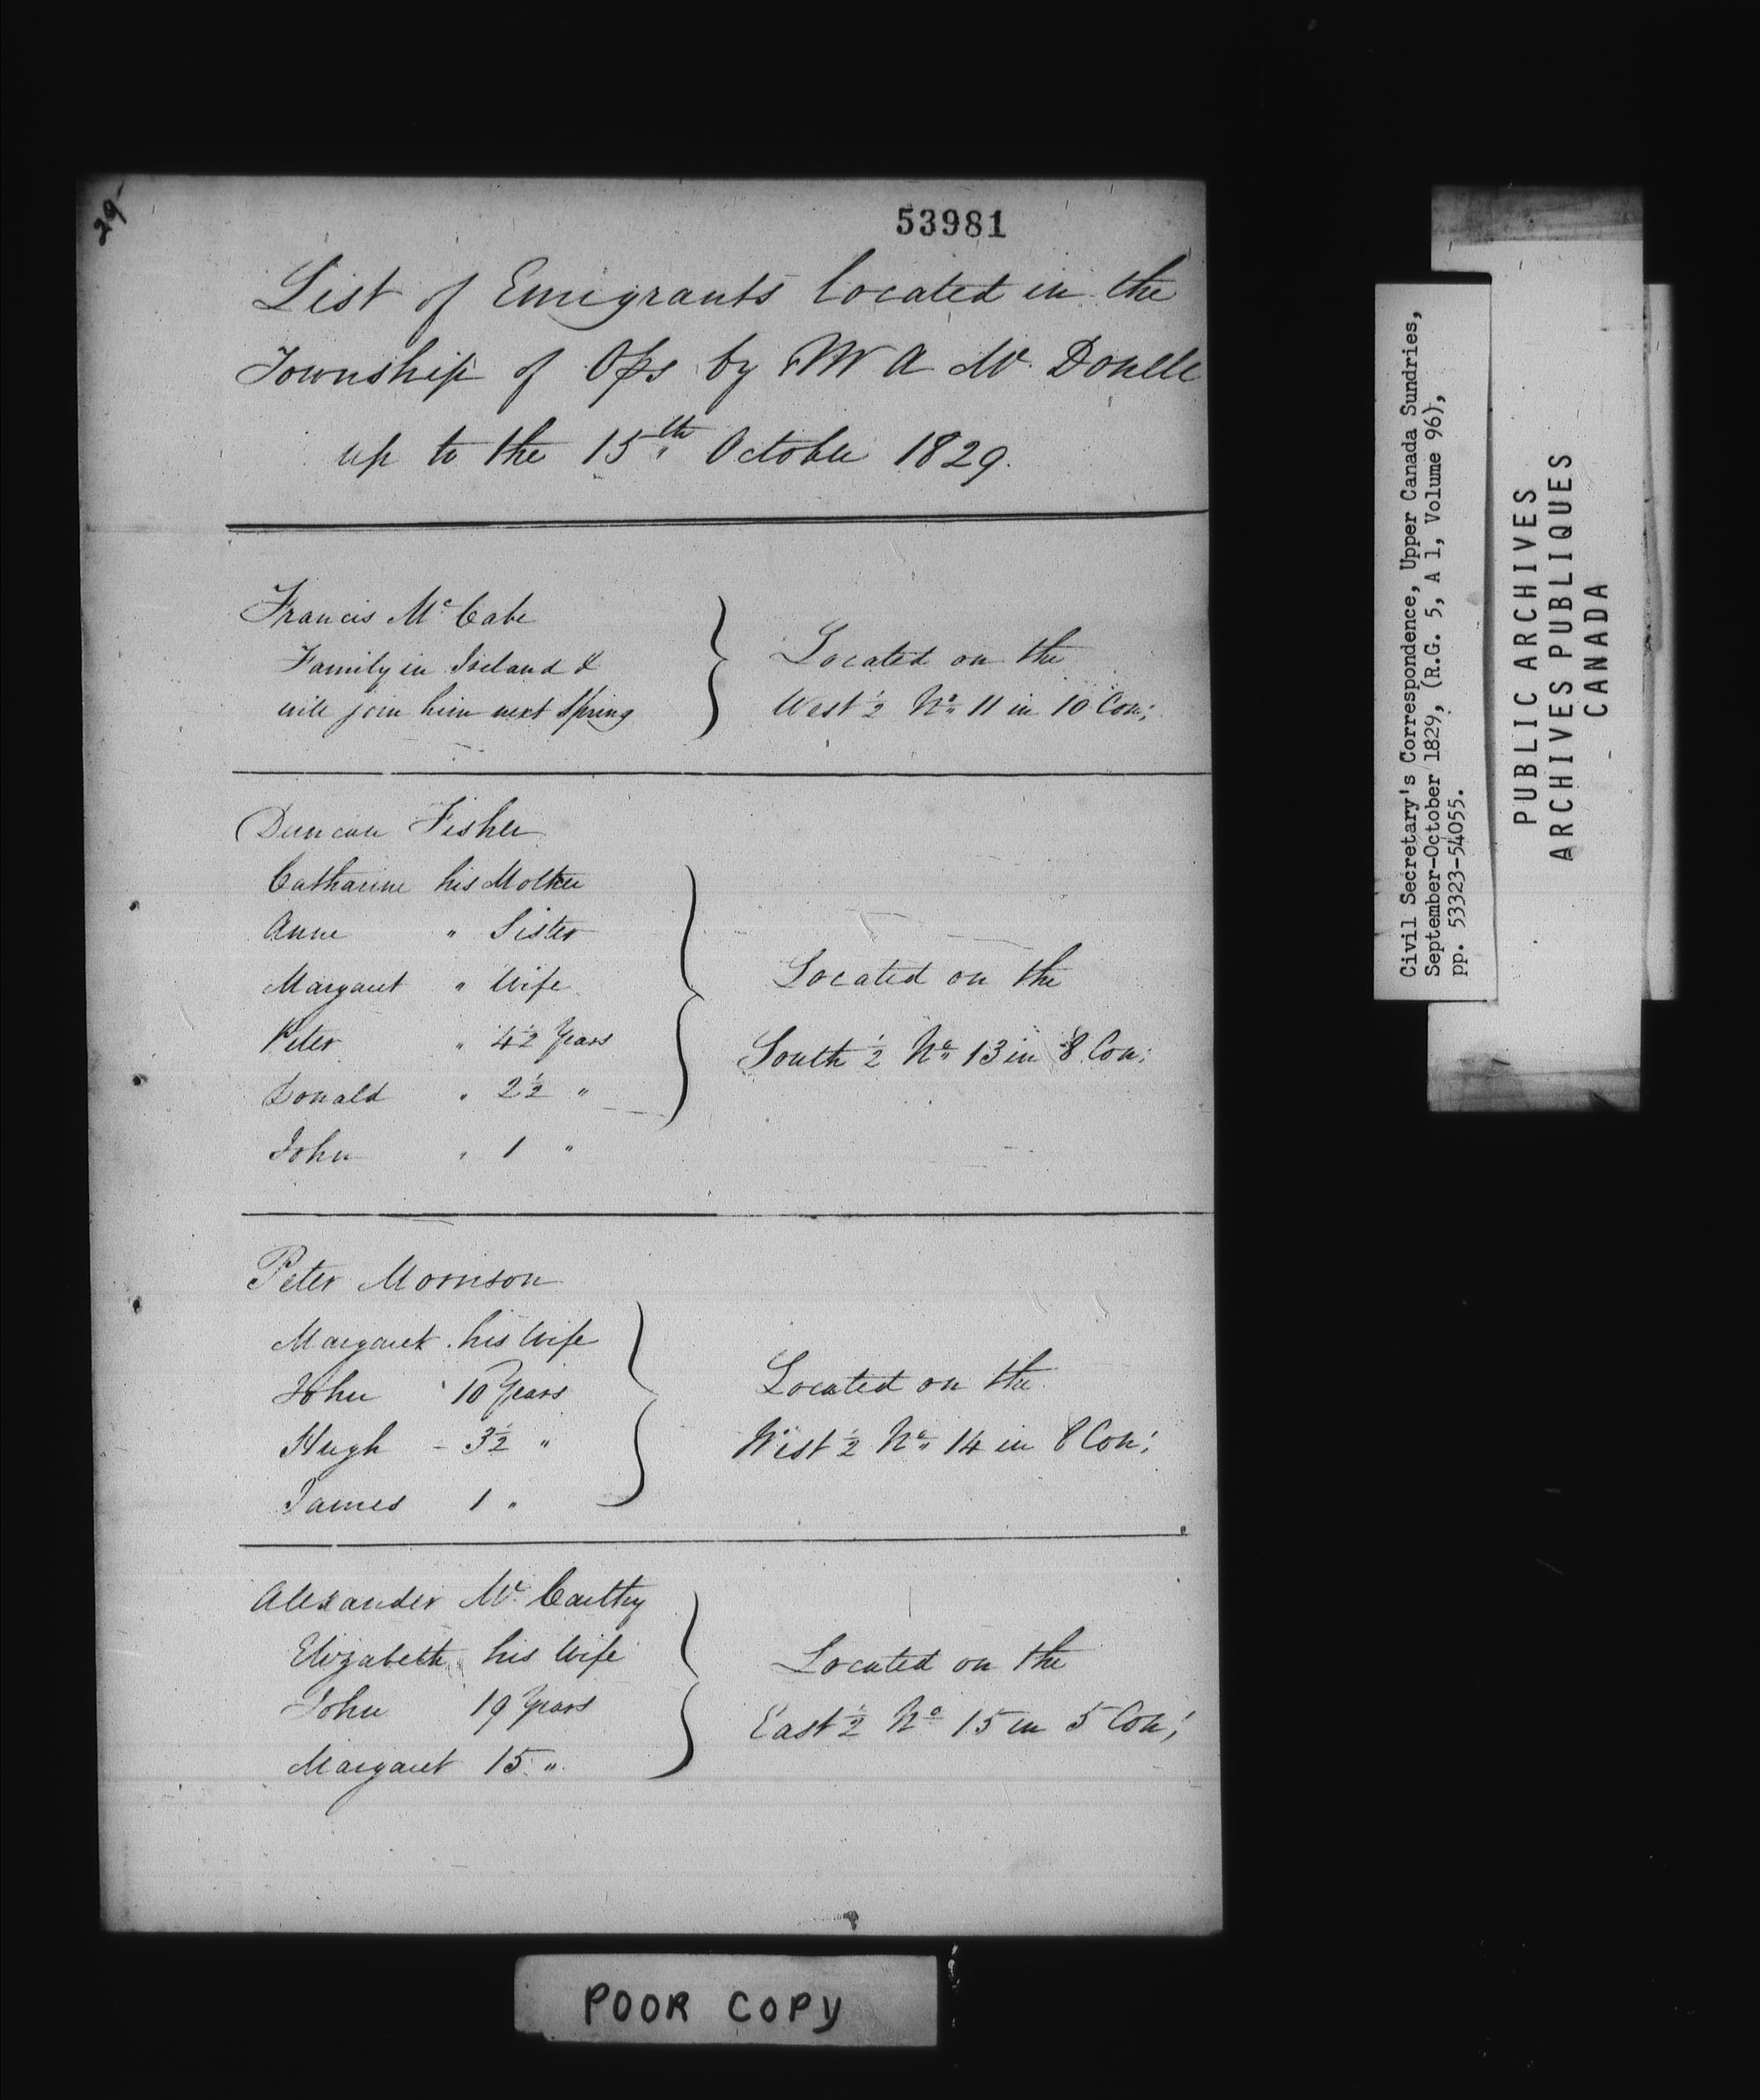 29
53981
List of Emigrants located in the
Township of Ops by Mr A Mc Donell
up to the 15th October 1829.
Francis McCabe
Family in Ireland &
will join him next Spring
Located on the
West ½ No 11 in 10 Con;
Duncan Fisher
Catharine his Mother
Anne " Sister
Margaret " Wife
Peter " 4½ Years
Donald " 2½ "
John " 1 "
Located on the
South ½ No 13 in 8 Con:
Peter Morrison
Margaret his Wife
John 10 Years
Hugh - 3½ "
James 1 "
Located on the
West ½ No 14 in 8 Con:
Alexander Mc Carthy
Elizabeth his Wife
John 19 Years
Margaret 15 "
Located on the
East ½ No 15 in 5 Con;
POOR COPY
Civil Secretary's Correspondence, Upper Canada Sundries,
September-October 1829, (R.G. 5, A 1, Volume 96),
pp. 53323-54055.
PUBLIC ARCHIVES
ARCHIVES PUBLIQUES
CANADA